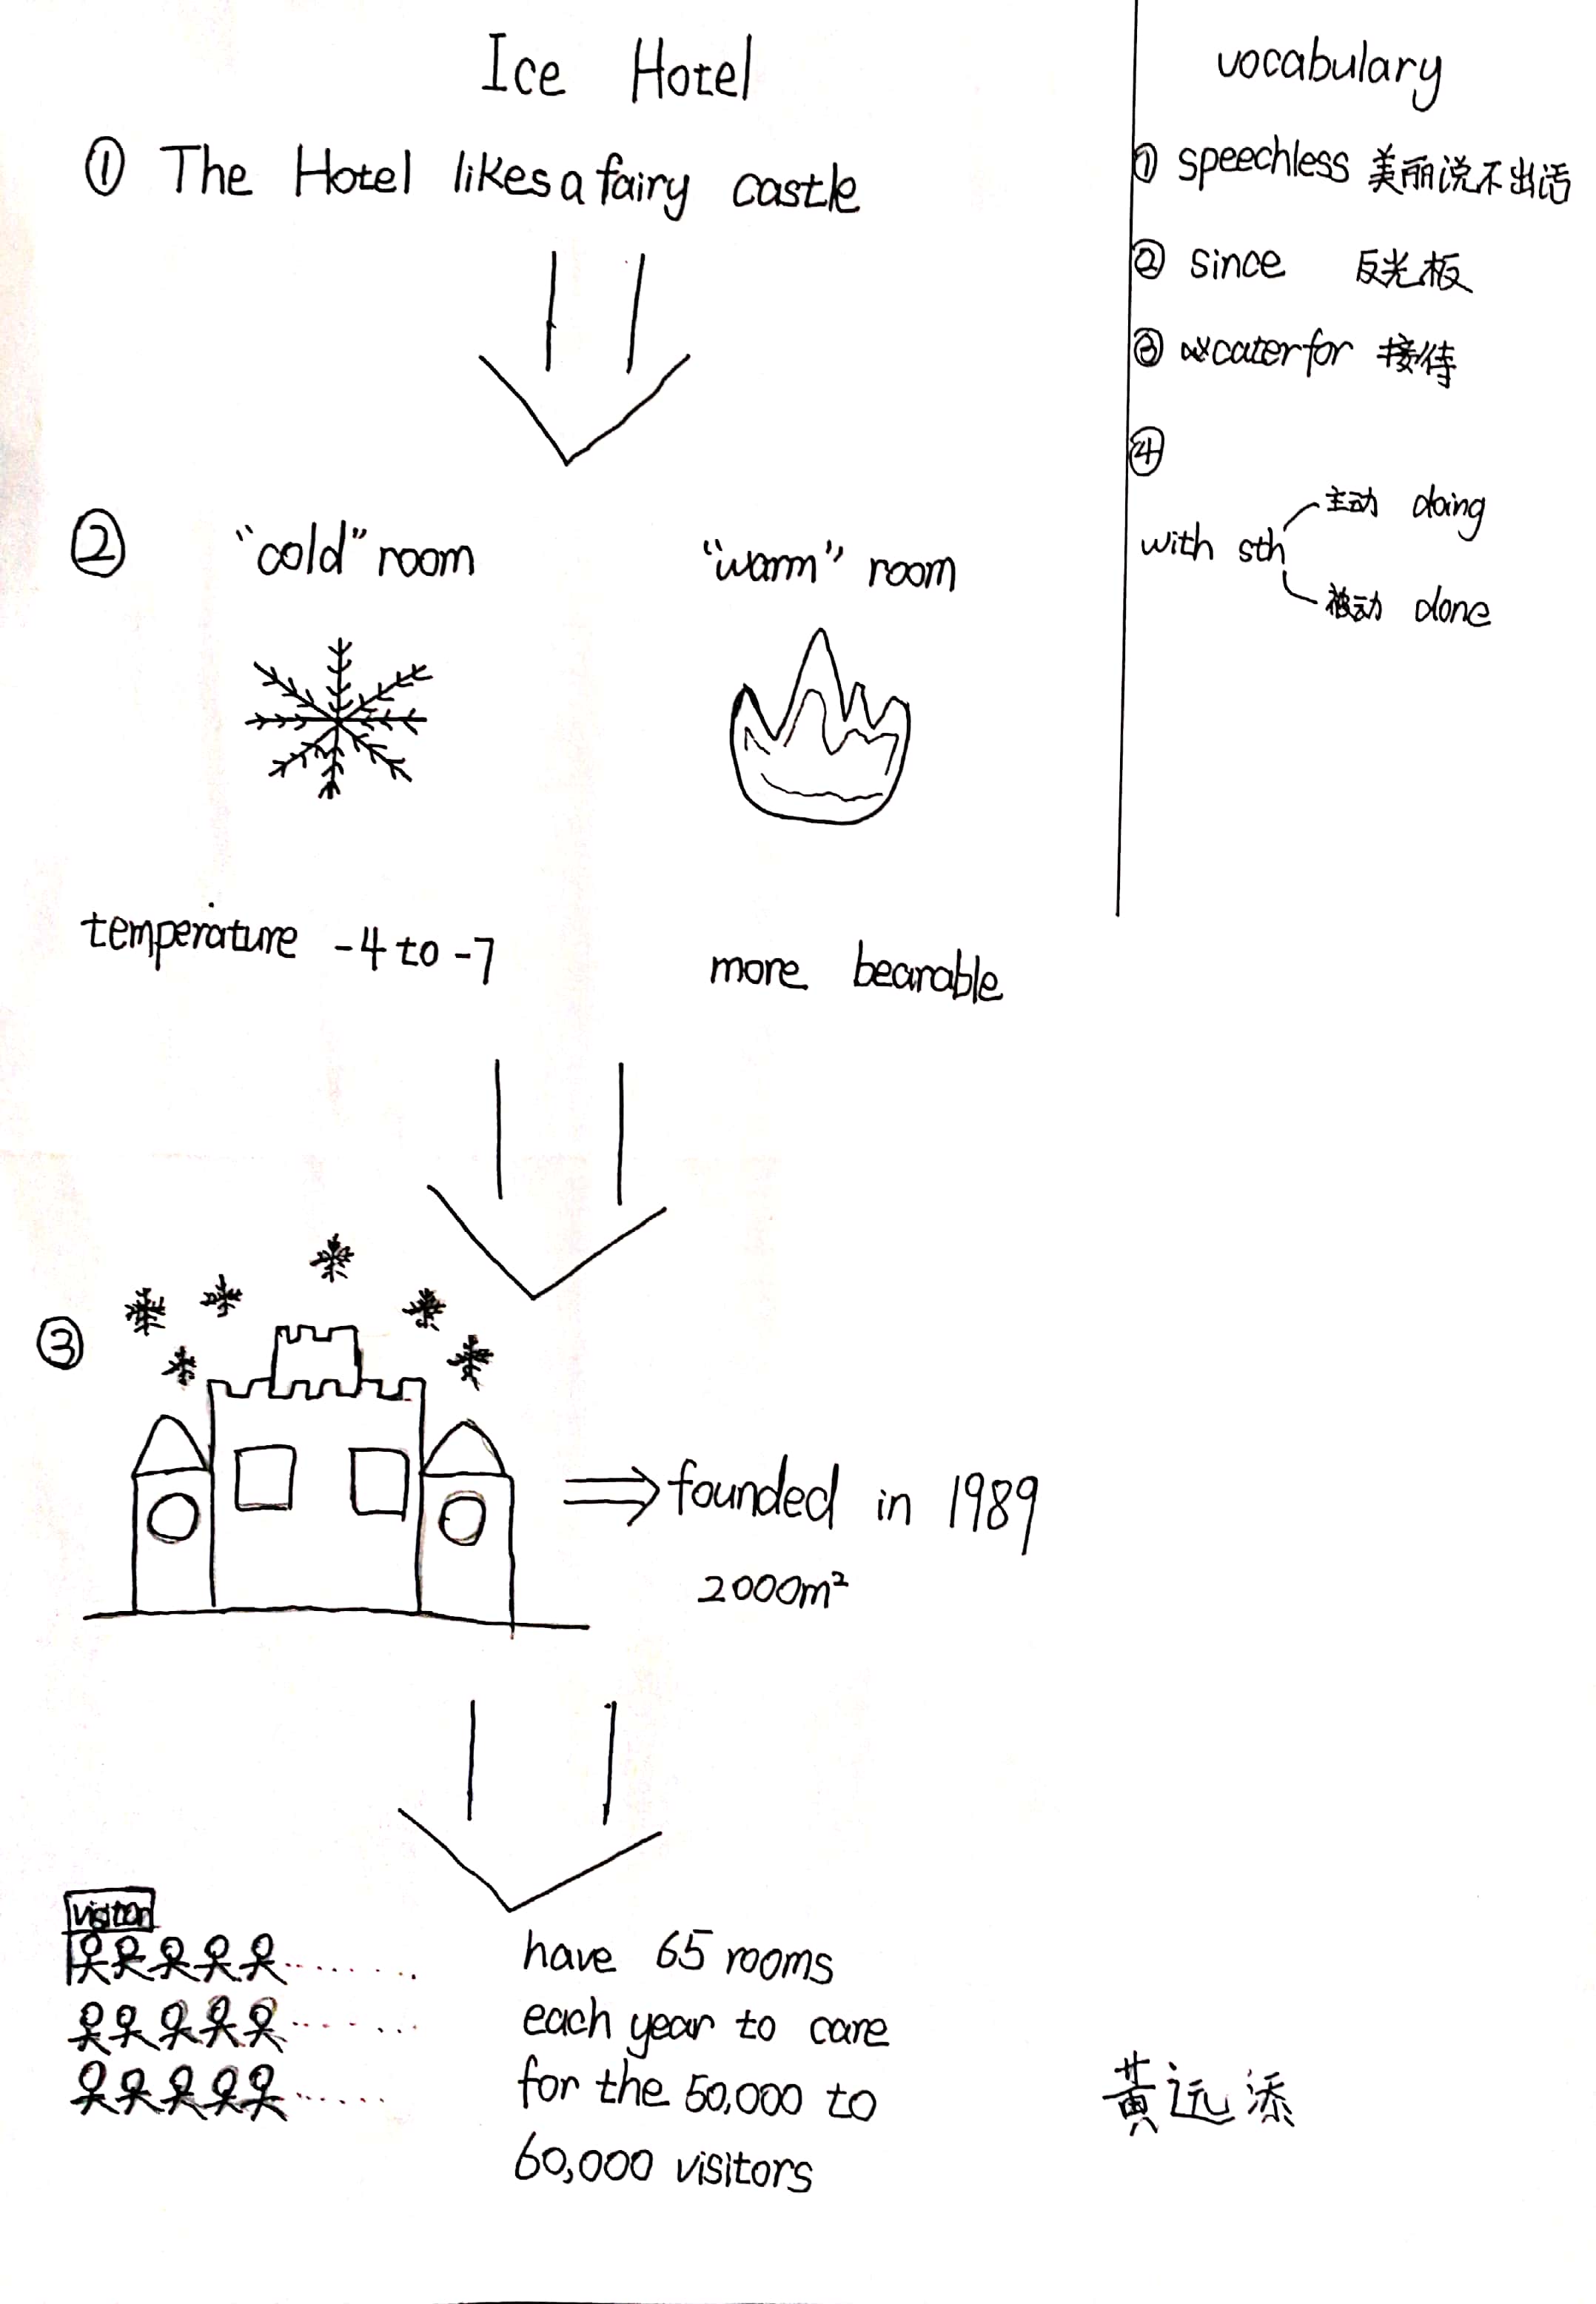 Ice Hotel
① The Hotel likes a fairy castle
② "cold" room "warm" room
temperature -4 to -7 more bearable
③
founded in 1989
2000m²
visitor
have 65 rooms
each year to care
for the 50,000 to
60,000 visitors
vocabulary
① speechless 美丽说不出话
② since 反光板
③ cater for 接待
④
with sth
主动 doing
被动 done
黄远添